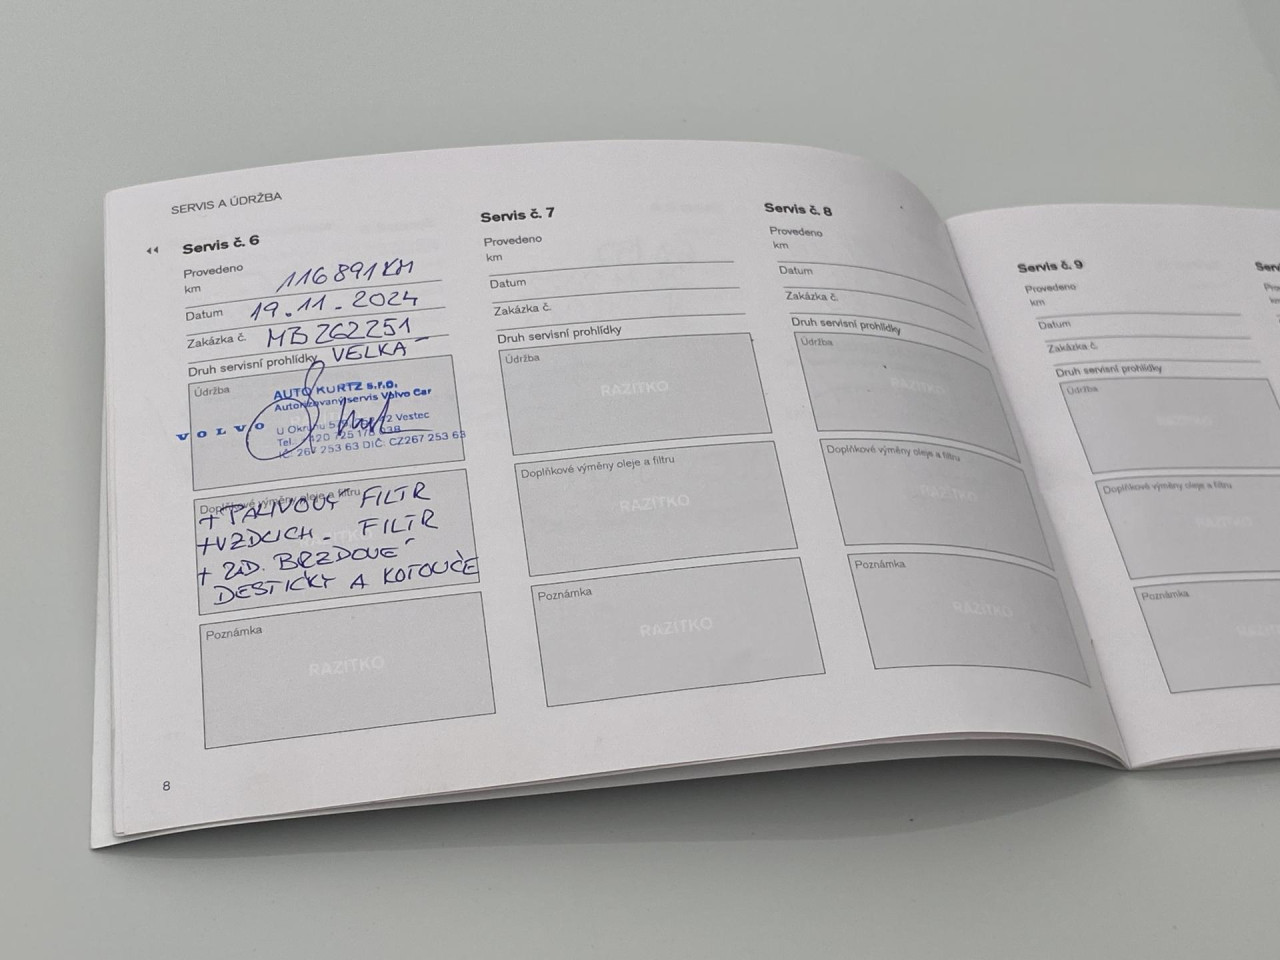 SERVIS A ÚDRŽBA
Servis č. 6
Provedeno
km 116 891 KM
Datum 19.11.2024
Zakázka č. MB262251
Druh servisní prohlídky VELKÁ
Údržba
AUTO KURTZ s.r.o.
Autorizovaný servis Volvo Car
VOLVO
U Okruhu Vestec
Tel.: +420 725 178 638
IČ: 267 253 63 DIČ: CZ267 253 63
Doplňkové výměny oleje a filtru
+ PALIVOVÝ FILTR
+ VZDUCH. FILTR
+ ZAD. BRZDOVÉ
DESTIČKY A KOTOUČE
Poznámka
RAZÍTKO
8
Servis č. 7
Provedeno
km
Datum
Zakázka č.
Druh servisní prohlídky
Údržba
RAZÍTKO
Doplňkové výměny oleje a filtru
RAZÍTKO
Poznámka
RAZÍTKO
Servis č. 8
Provedeno
km
Datum
Zakázka č.
Druh servisní prohlídky
Údržba
RAZÍTKO
Doplňkové výměny oleje a filtru
RAZÍTKO
Poznámka
RAZÍTKO
Servis č. 9
Provedeno
km
Datum
Zakázka č.
Druh servisní prohlídky
Údržba
RAZÍTKO
Doplňkové výměny oleje a filtru
RAZÍTKO
Poznámka